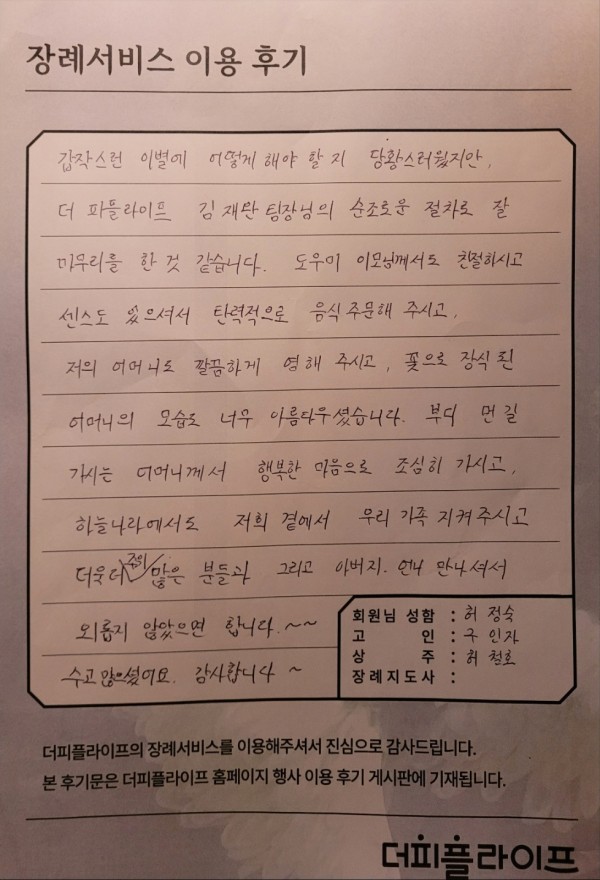 장례서비스 이용 후기
갑작스런 이별에 어떻게 해야 할 지 당황스러웠지만,
더 파플라이프 김재완 팀장님의 순조로운 절차로 잘
마무리를 한 것 같습니다. 도우미 이모님께서도 친절하시고
센스도 있으셔서 탄력적으로 음식 주문해 주시고,
저의 어머니도 깔끔하게 염해 주시고, 꽃으로 장식 된
어머니의 모습도 너무 아름다우셨습니다. 부디 먼 길
가시는 어머니께서 행복한 마음으로 조심히 가시고,
하늘나라에서도 저희 곁에서 우리 가족 지켜 주시고
더욱 더 주위 많은 분들과 그리고 아버지. 언니 만나셔서
외롭지 않았으면 합니다. ~~
수고 많으셨어요. 감사합니다 ~
회원님 성함 : 허 정숙
고 인 : 구 인자
상 주 : 허 철호
장례지도사 :
더피플라이프의 장례서비스를 이용해주셔서 진심으로 감사드립니다.
본 후기문은 더피플라이프 홈페이지 행사 이용 후기 게시판에 기재됩니다.
더피플라이프